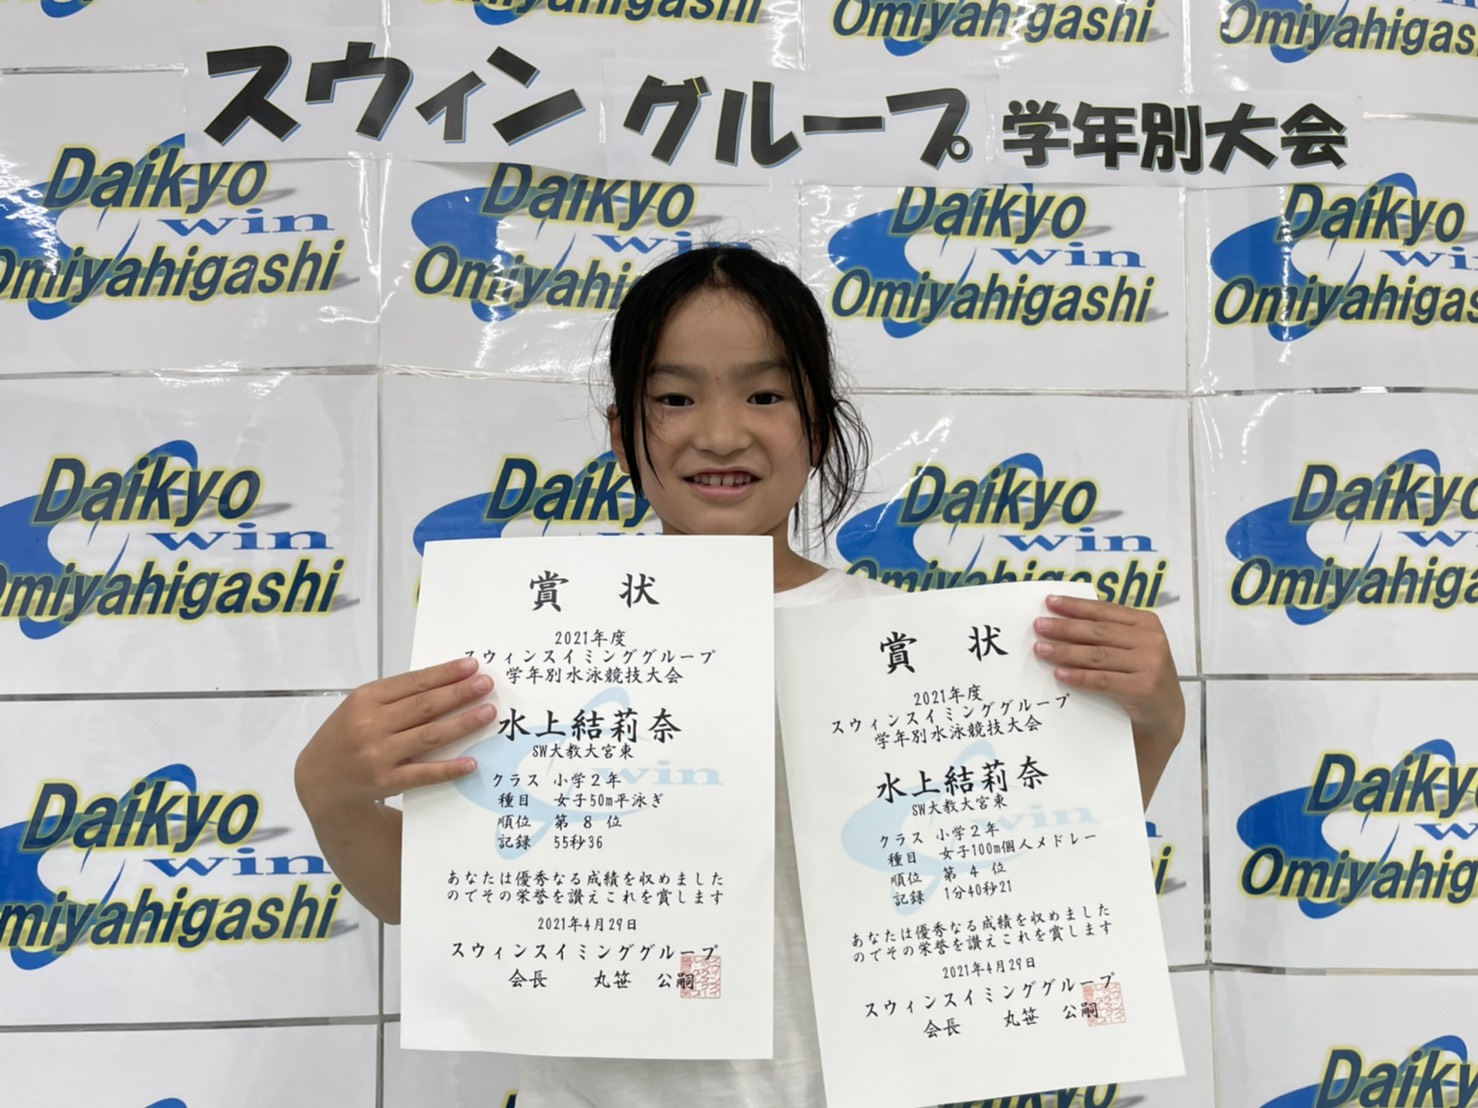 スウィン グループ 学年別大会
Daikyo
win
Omiyahigashi
賞 状
2021年度
スウィンスイミンググループ
学年別水泳競技大会
水上結莉奈
SW大教大宮東
クラス 小学2年
種目 女子50m平泳ぎ
順位 第 8 位
記録 55秒36
あなたは優秀なる成績を収めました
のでその栄誉を讃えこれを賞します
2021年4月29日
スウィンスイミンググループ
会長 丸笹 公嗣
賞 状
2021年度
スウィンスイミンググループ
学年別水泳競技大会
水上結莉奈
SW大教大宮東
クラス 小学2年
種目 女子100m個人メドレー
順位 第 4 位
記録 1分40秒21
あなたは優秀なる成績を収めました
のでその栄誉を讃えこれを賞します
2021年4月29日
スウィンスイミンググループ
会長 丸笹 公嗣